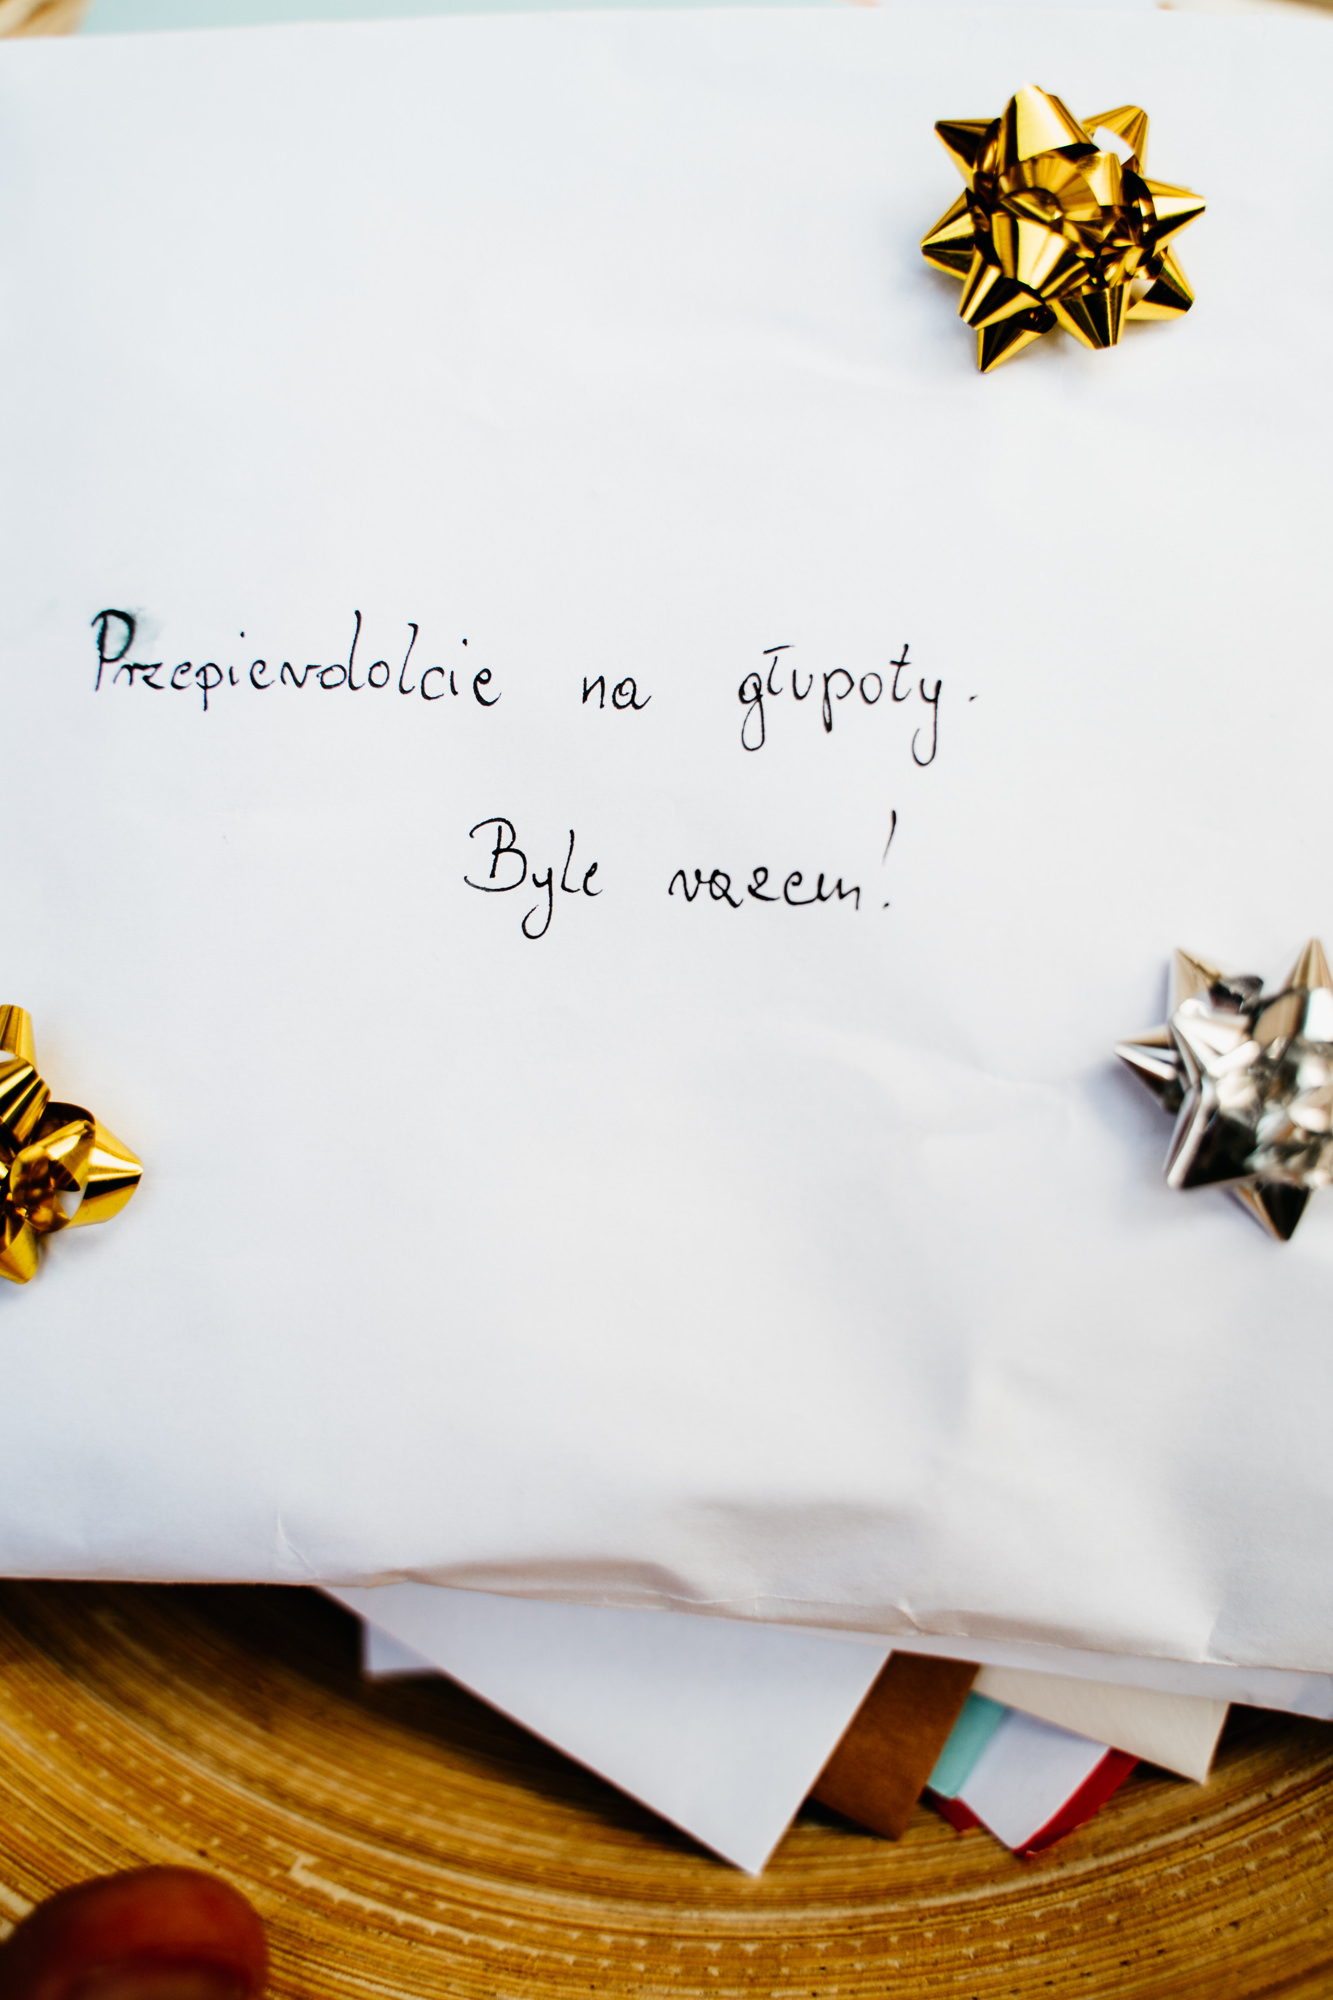 Przepierdolcie na głupoty.
Byle razem!